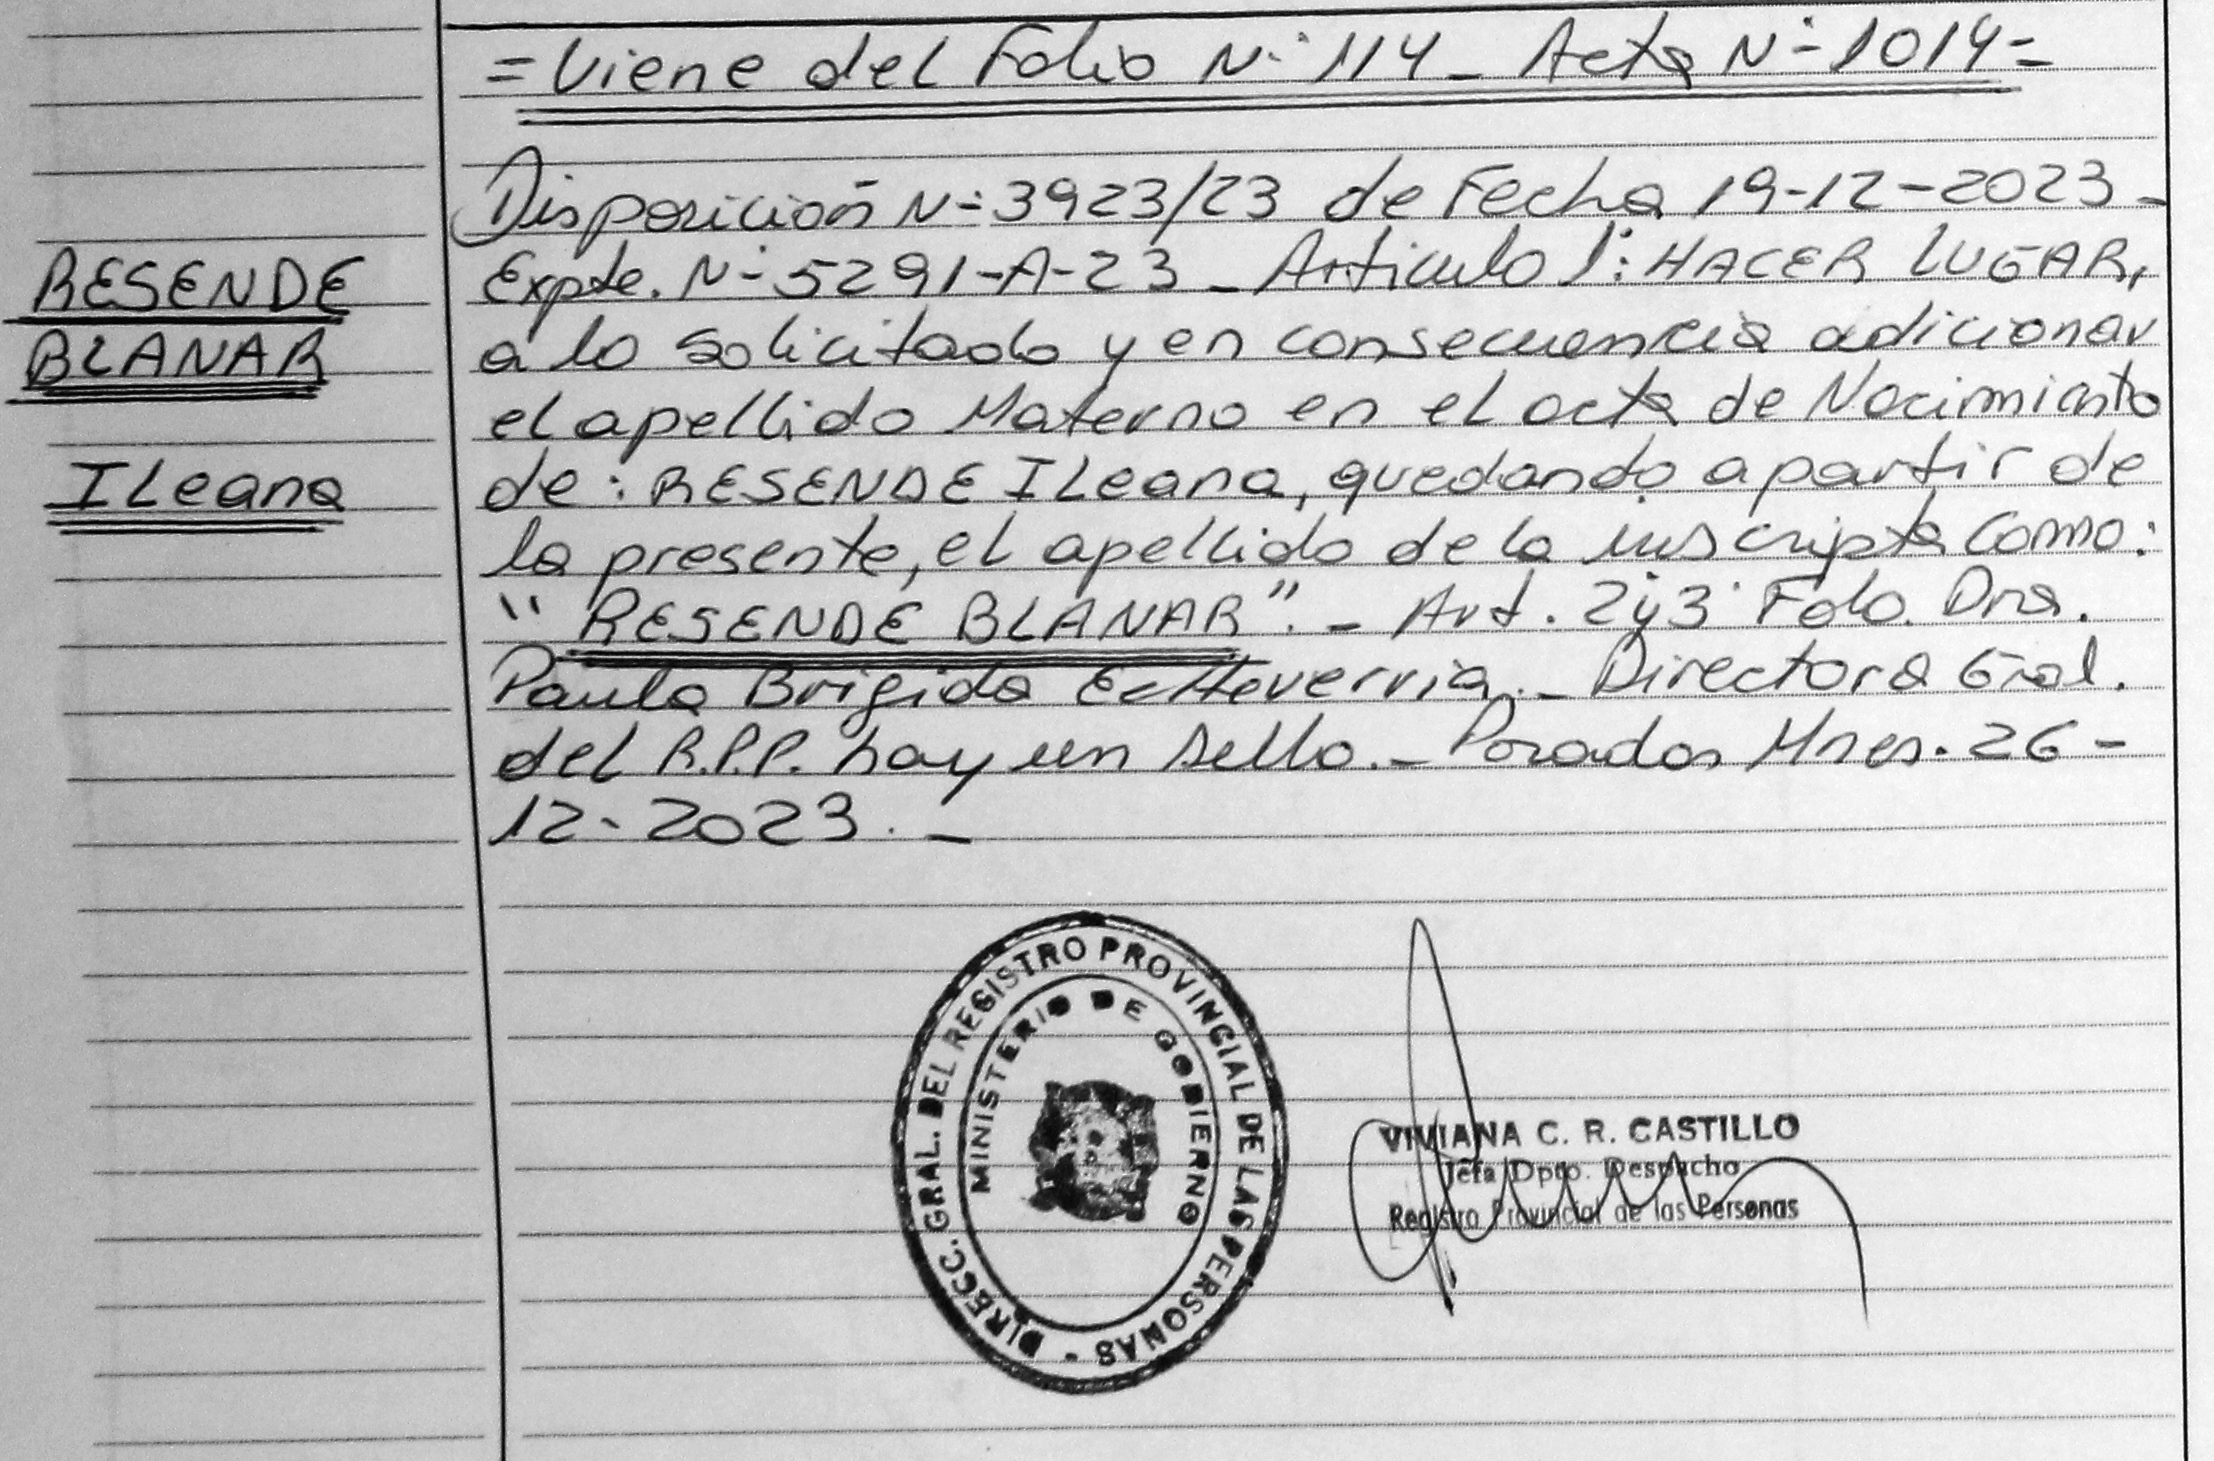 = Viene del Folio N° 114 - Acta N° 1014 =
Disposición N° 3923/23 de Fecha 19-12-2023-
Expte. N° 5291-A-23 - Artículo 1°: HACER LUGAR,
RESENDE
a lo solicitado y en consecuencia adicionar
BLANAR
el apellido Materno en el acta de Nacimiento
de: RESENDE ILeana, quedando a partir de
ILeana
la presente, el apellido de la inscripta como:
"RESENDE BLANAR". - Art. 2y3° Fdo. Dra.
Paula Brigida Echeverria. - Directora Gral.
del R.P.P. hay un sello. - Posadas Mnes. 26-
12-2023. -
DIRECC. GRAL. DEL REGISTRO PROVINCIAL DE LAS PERSONAS -
MINISTERIO DE GOBIERNO
VIVIANA C. R. CASTILLO
Jefa Dpto. Despacho
Registro Provincial de las Personas